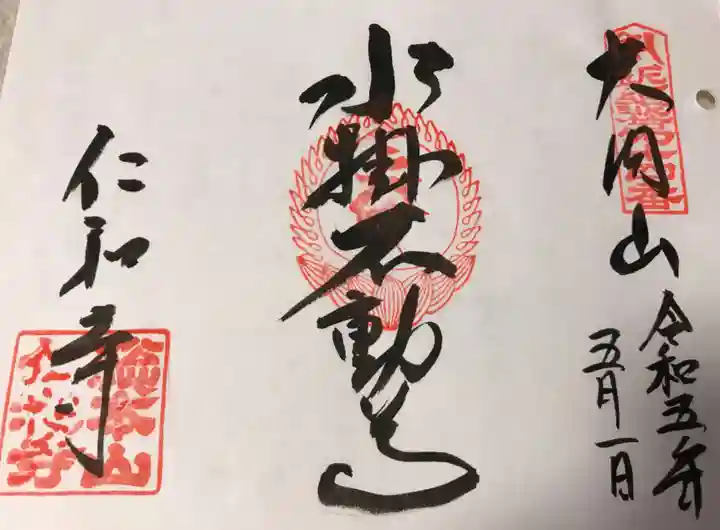 大内山
令和五年
五月一日
水掛不動尊
仁和寺